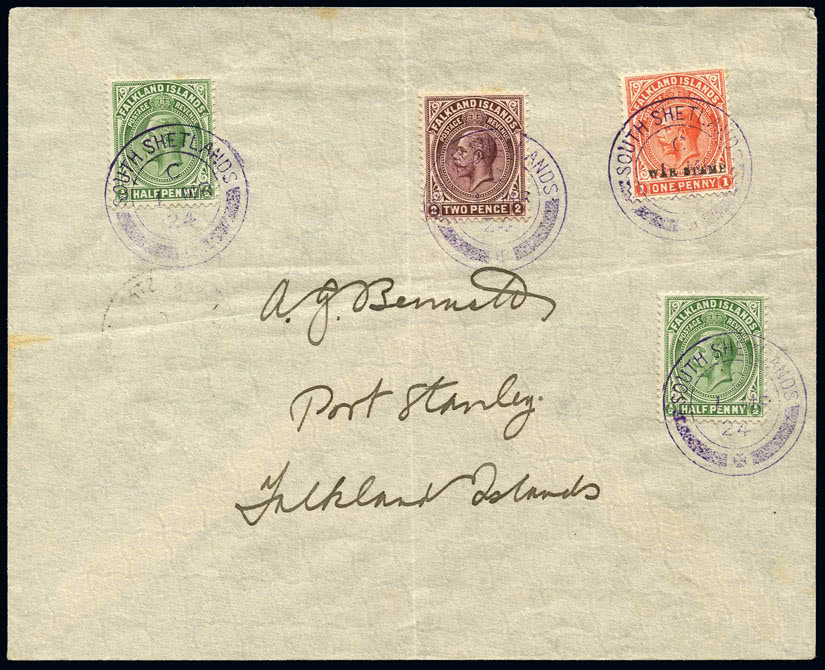 FALKLAND ISLANDS
POSTAGE REVENUE
HALF PENNY
SOUTH SHETLANDS
C
24
FALKLAND ISLANDS
POSTAGE REVENUE
2 TWO PENCE 2
LANDS
24
FALKLAND ISLANDS
POSTAGE REVENUE
WAR STAMP
1 ONE PENNY 1
SOUTH SHETLANDS
C
A. G. Bennett
Port Stanley.
Falkland Islands
FALKLAND ISLANDS
POSTAGE REVENUE
½ HALF PENNY ½
SOUTH SHETLANDS
24